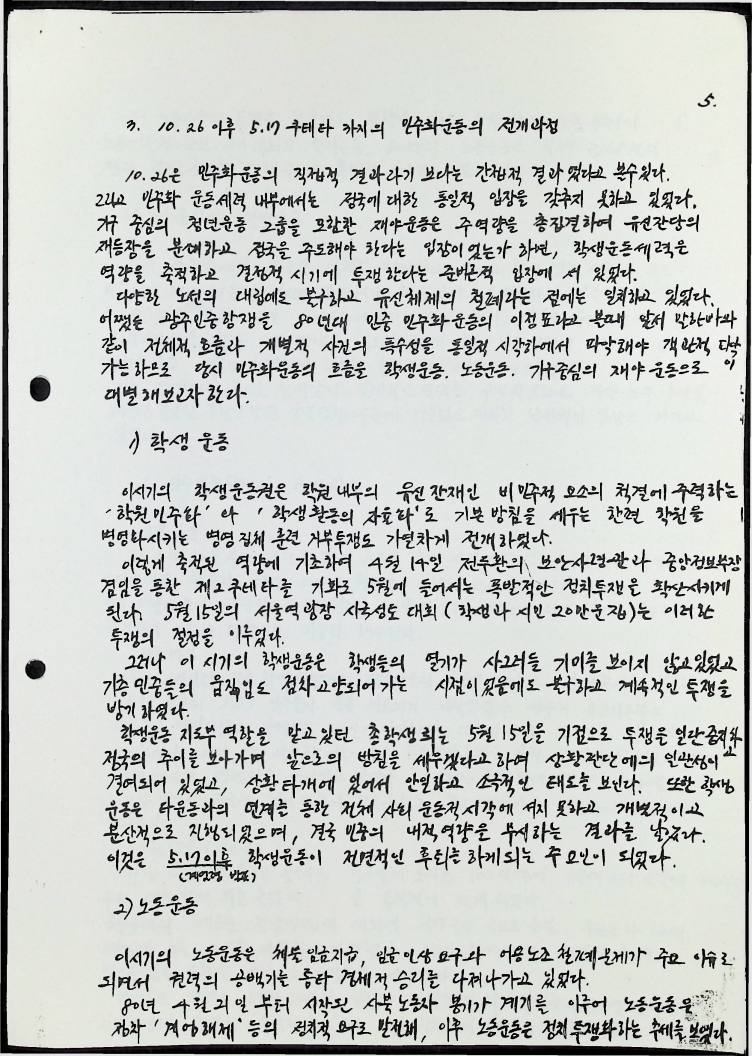 5.
3. 10.26 이후 5.17 쿠테타 까지의 민주화운동의 전개과정
10.26은 민주화운동의 직접적 결과라기 보다는 간접적 결과였다고 볼수있다.
그리고 민주화 운동세력 내부에서는 정국에 대한 통일적 입장을 갖추지 못하고 있었다.
기구 중심의 청년운동 그룹을 포함한 재야운동은 주역량을 총집결하여 유신잔당의
재등장을 분쇄하고 정국을 주도해야 한다는 입장이 있는가 하면, 학생운동세력은
역량을 축적하고 결정적 시기에 투쟁한다는 준비론적 입장에 서 있었다.
다양한 노선의 대립에도 불구하고 유신체제의 철폐라는 점에는 일치하고 있었다.
어쨌든 광주민중항쟁을 80년대 민중 민주화운동의 이정표라고 볼때 앞서 말한바와
같이 전체적 흐름과 개별적 사건의 특수성을 통일적 시각하에서 파악해야 객관적 파악이
가능하므로 당시 민주화운동의 흐름을 학생운동. 노동운동. 기구중심의 재야운동으로
대별해보고자 한다.
1) 학생 운동
이시기의 학생운동권은 학원 내부의 유신 잔재인 비민주적 요소의 척결에 주력하는
'학원민주화' 와 '학생활동의 자율화'로 기본 방침을 세우는 한편 학원을
병영화시키는 병영 집체 훈련 거부투쟁도 가열차게 전개하였다.
이렇게 축적된 역량에 기초하여 4월 14일 전두환의 보안사령관과 중앙정보부장
겸임을 통한 제2쿠테타를 기화로 5월에 들어서는 폭발적인 정치투쟁을 확산시키게
된다. 5월 15일의 서울역 광장 시국성토 대회 (학생과 시민 20만운집)는 이러한
투쟁의 절정을 이루었다.
그러나 이 시기의 학생운동은 학생들의 열기가 사그러들 기미를 보이지 않고있었고
기층 민중들의 움직임도 점차 고양되어 가는 시점이었음에도 불구하고 계속적인 투쟁을
방기하였다.
학생운동 지도부 역할을 맡고 있던 총학생회는 5월 15일을 기점으로 투쟁을 일단중지하고
정국의 추이를 보아가며 앞으로의 방침을 세우겠다고 하여 상황판단에의 일관성이
결여되어 있었고, 상황타개에 있어서 안일하고 소극적인 태도를 보인다. 또한 학생
운동은 타운동과의 연계를 통한 전체 사회 운동적 시각에 서지 못하고 개별적이고
분산적으로 진행되었으며, 결국 민중의 내적역량을 무시하는 결과를 낳았다.
이것은 5.17이후 학생운동이 전면적인 후퇴를 하게되는 주요인이 되었다.
(계엄령 발표)
2) 노동운동
이시기의 노동운동은 체불임금지급, 임금인상요구와 어용노조철폐문제가 주요 이슈로
되면서 권력의 공백기를 통타 경제적 승리를 다져나가고 있었다.
80년 4월 21일 부터 시작된 사북노동자 봉기가 계기를 이루어 노동운동은
점차 '계엄해제' 등의 정치적 요구로 발전해, 이후 노동운동은 정치투쟁화하는 추세를 보였다.